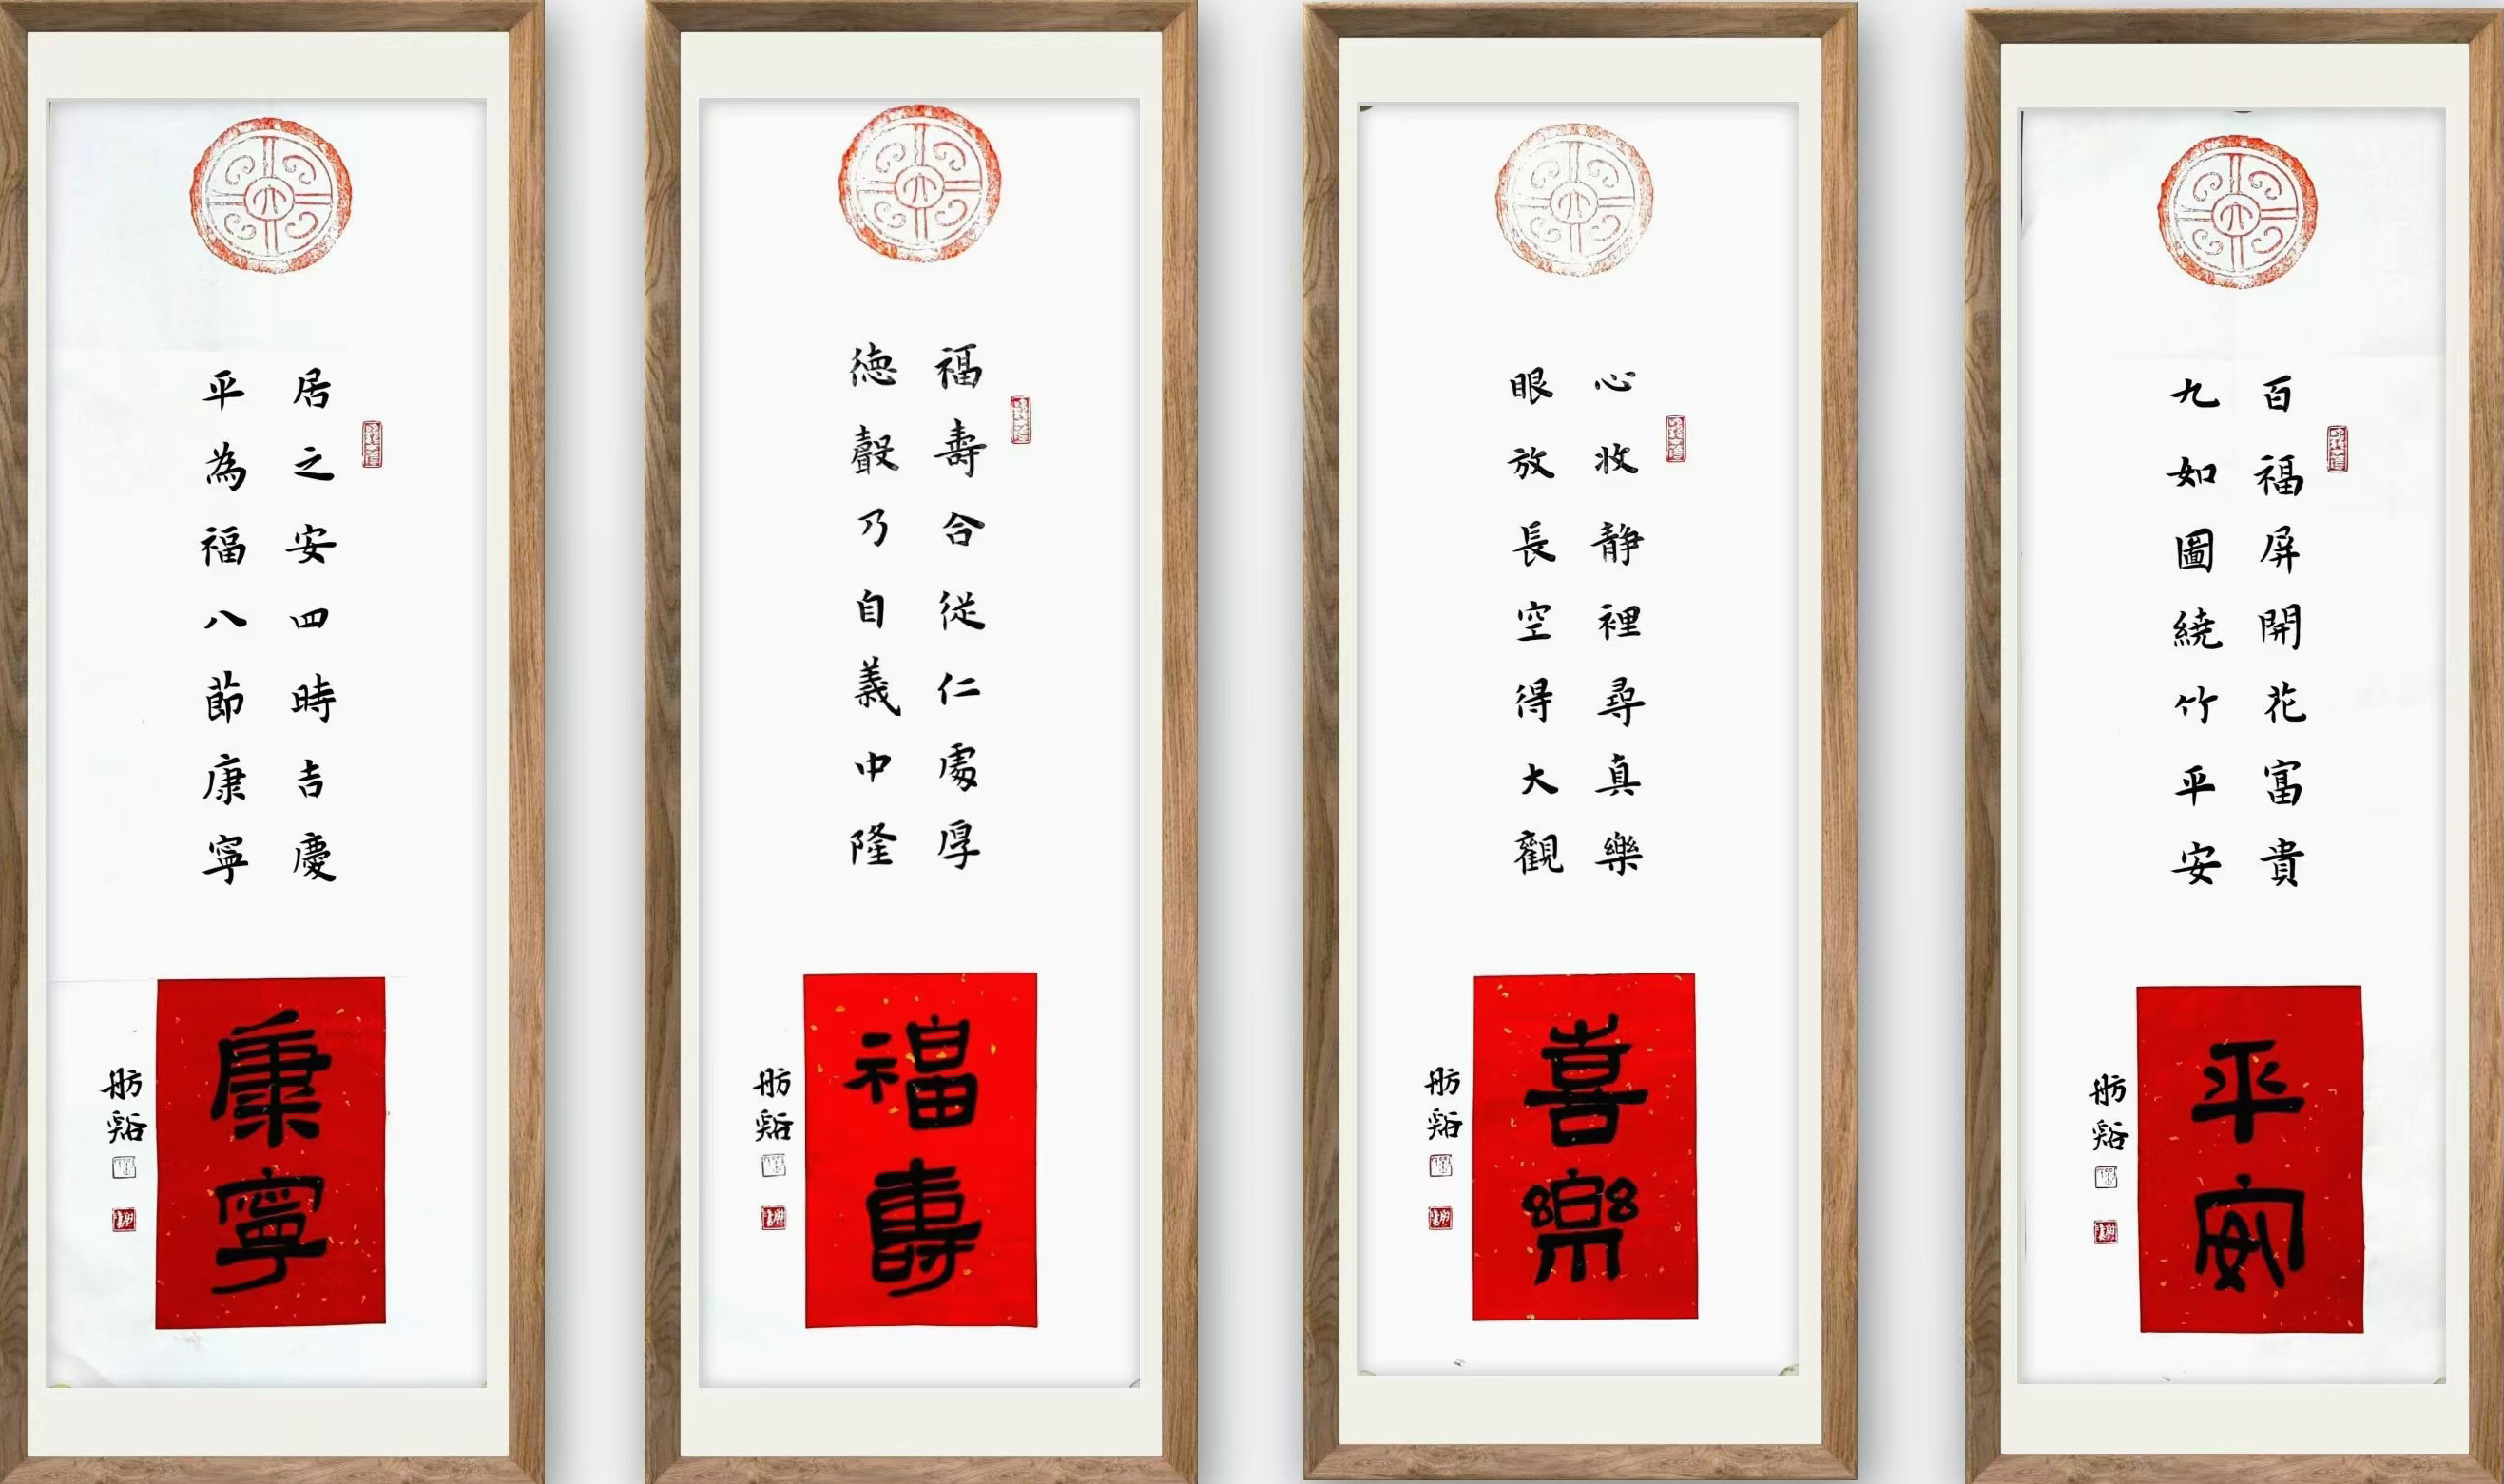 百福屏開花富貴
九如圖繞竹平安
平安
舫谿
心收静裡尋真樂
眼放長空得大觀
喜樂
舫谿
福壽合從仁處厚
德聲乃自義中隆
福壽
舫谿
居之安四時吉慶
平為福八節康寧
康寧
舫谿